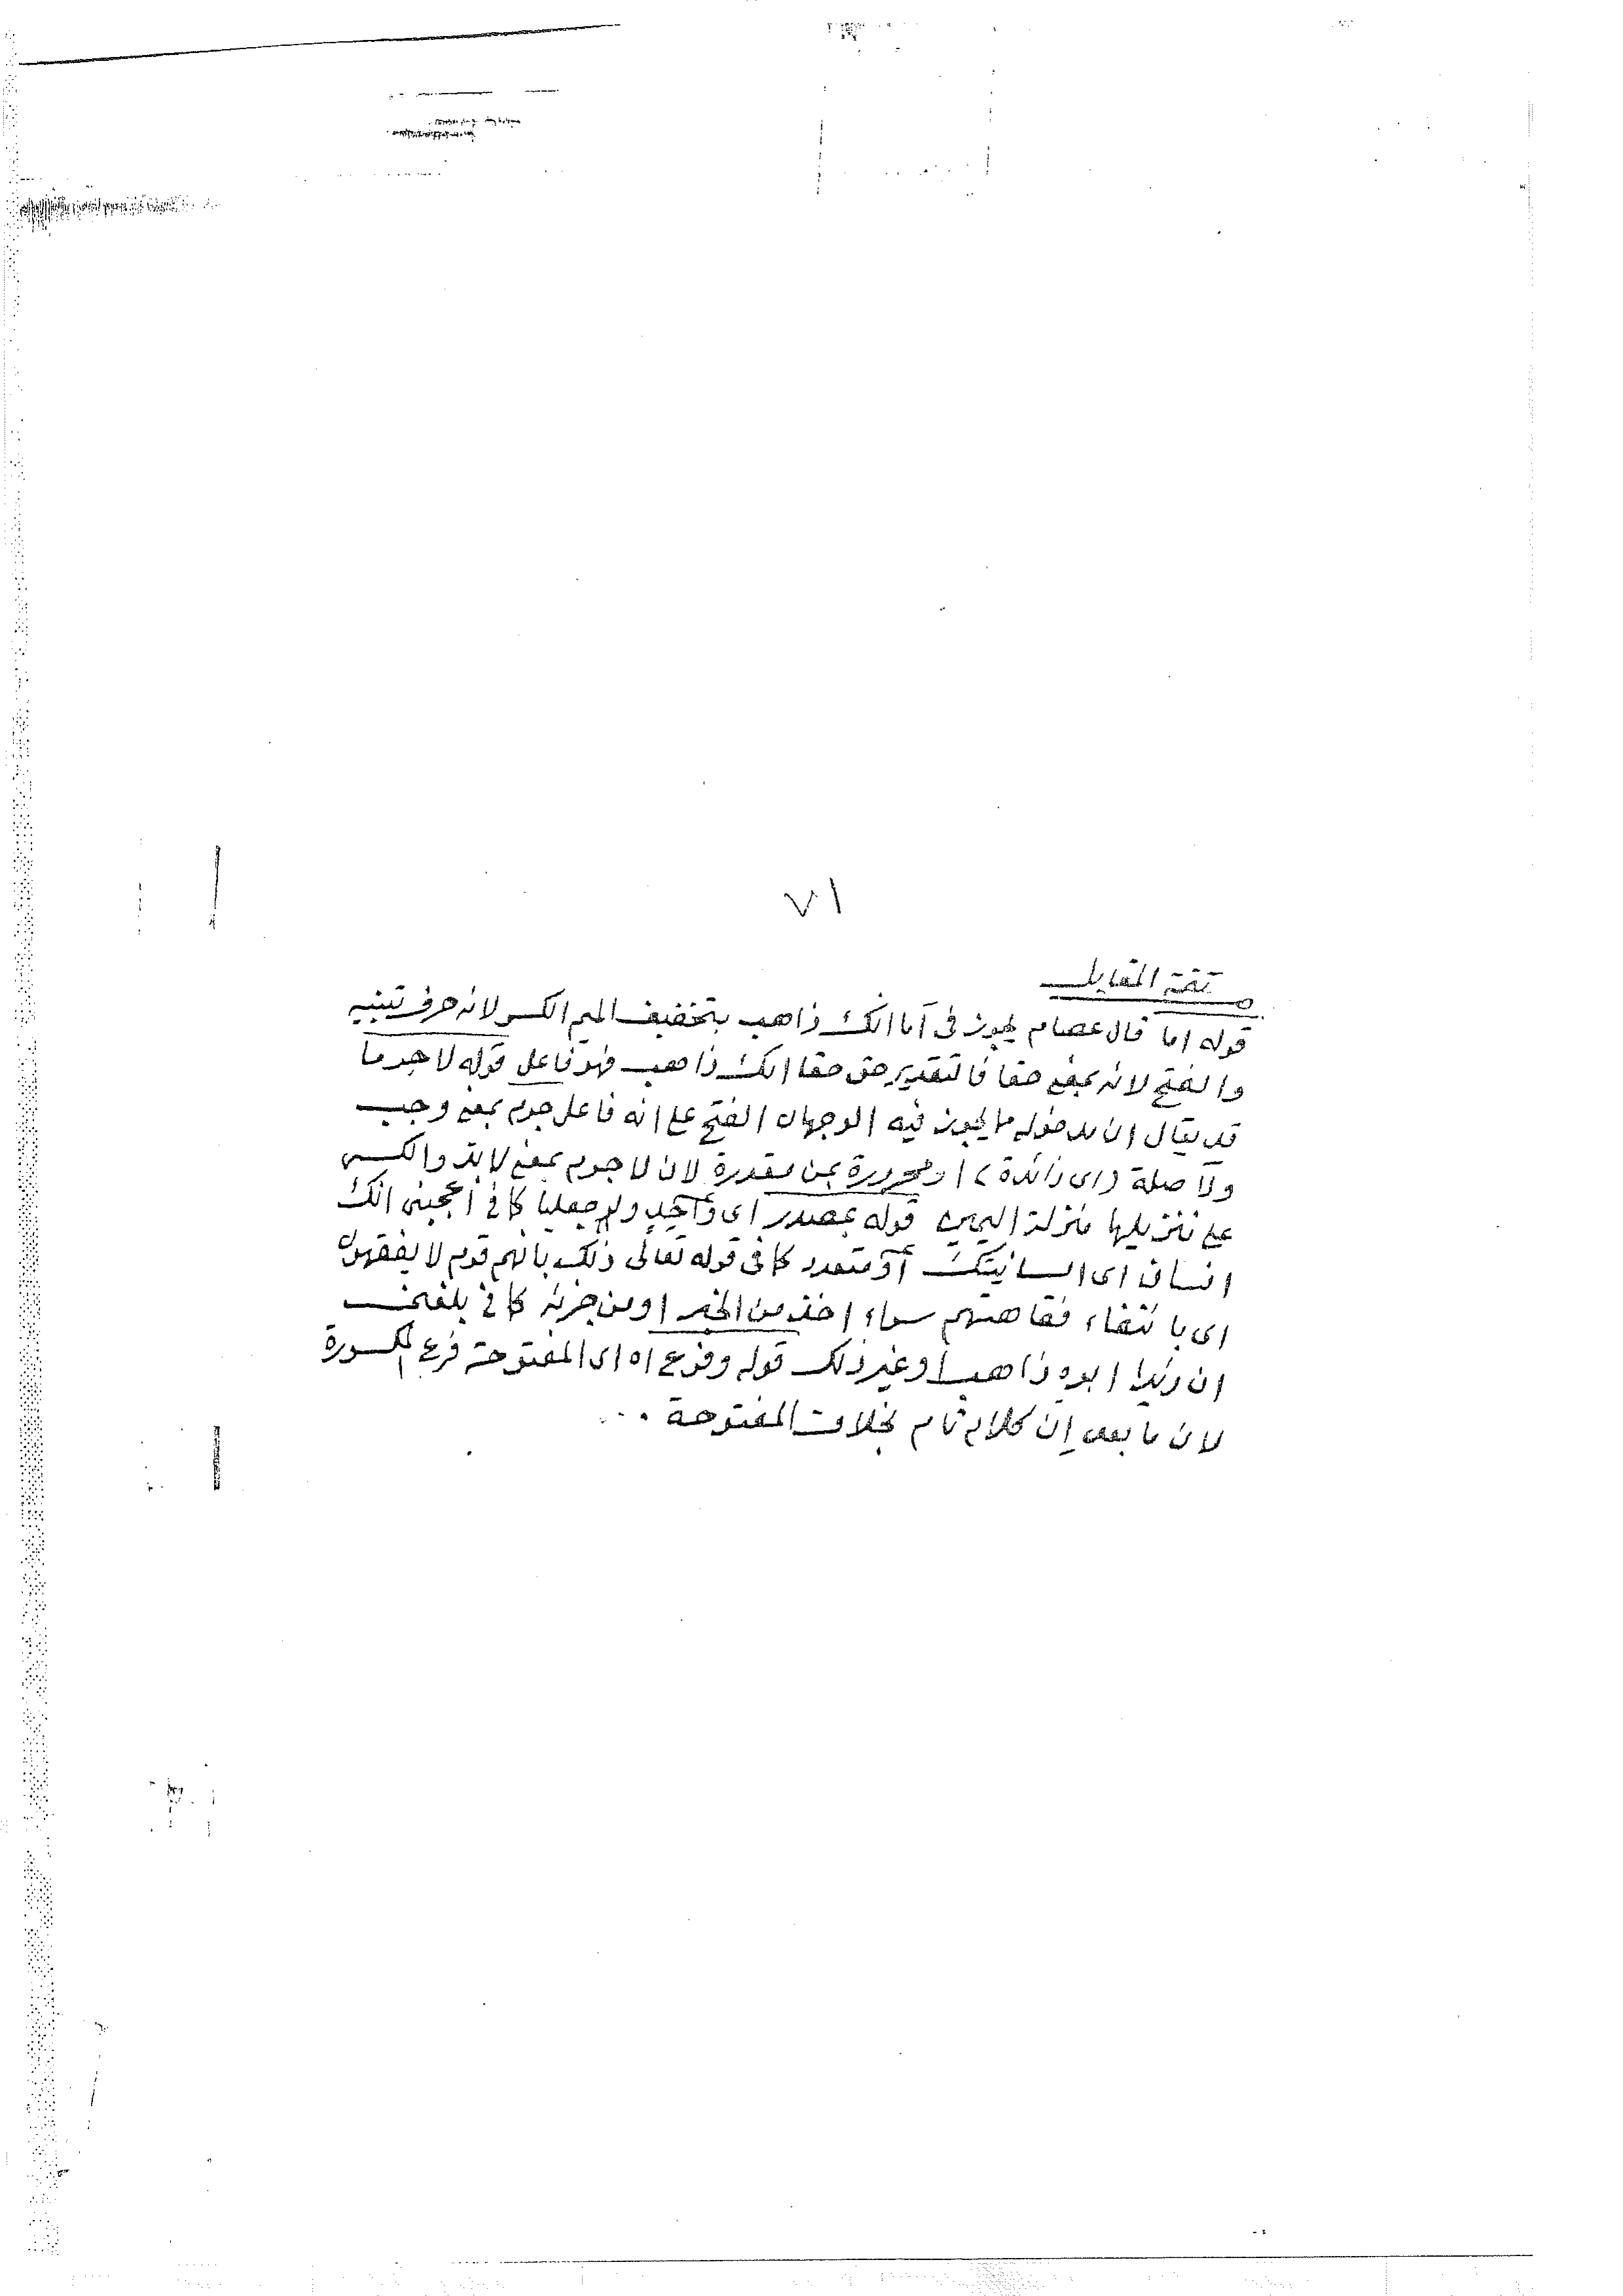 ٧١
تتمة المقابل
قوله اما قال عصام يجوز فى اما انك ذاهب بتخفيف الميم الكسر لانه حرف تنبيه
والفتح لانه بمعنى حقا فالتقدير حق حقا انك ذاهب فهو فاعل قوله لا جرما
قد يقال ان مدخوله مما يجوز فيه الوجهان الفتح على انه فاعل جرم بمعنى وجب
ولا صلة (اى زائدة) او مجرورة بمن مقدرة لان لا جرم بمعنى لا بد والكسر
على تنزيلها منزلة اليمين قوله بمصدر اى واحد ولو جعليا كما فى اعجبنى انك
انسان اى انسانيتك أو متعدد كما فى قوله تعالى ذلك بانهم قوم لا يفقهون
اى بانتفاء فقاهتهم سواء اخذ من الخبر او من جزئه كما فى بلغنى
ان زيدا ابوه ذاهب او غير ذلك قوله وفرع اه اى المفتوحة فرع المكسورة
لان ما بعد إن كلام تام بخلاف المفتوحة ...